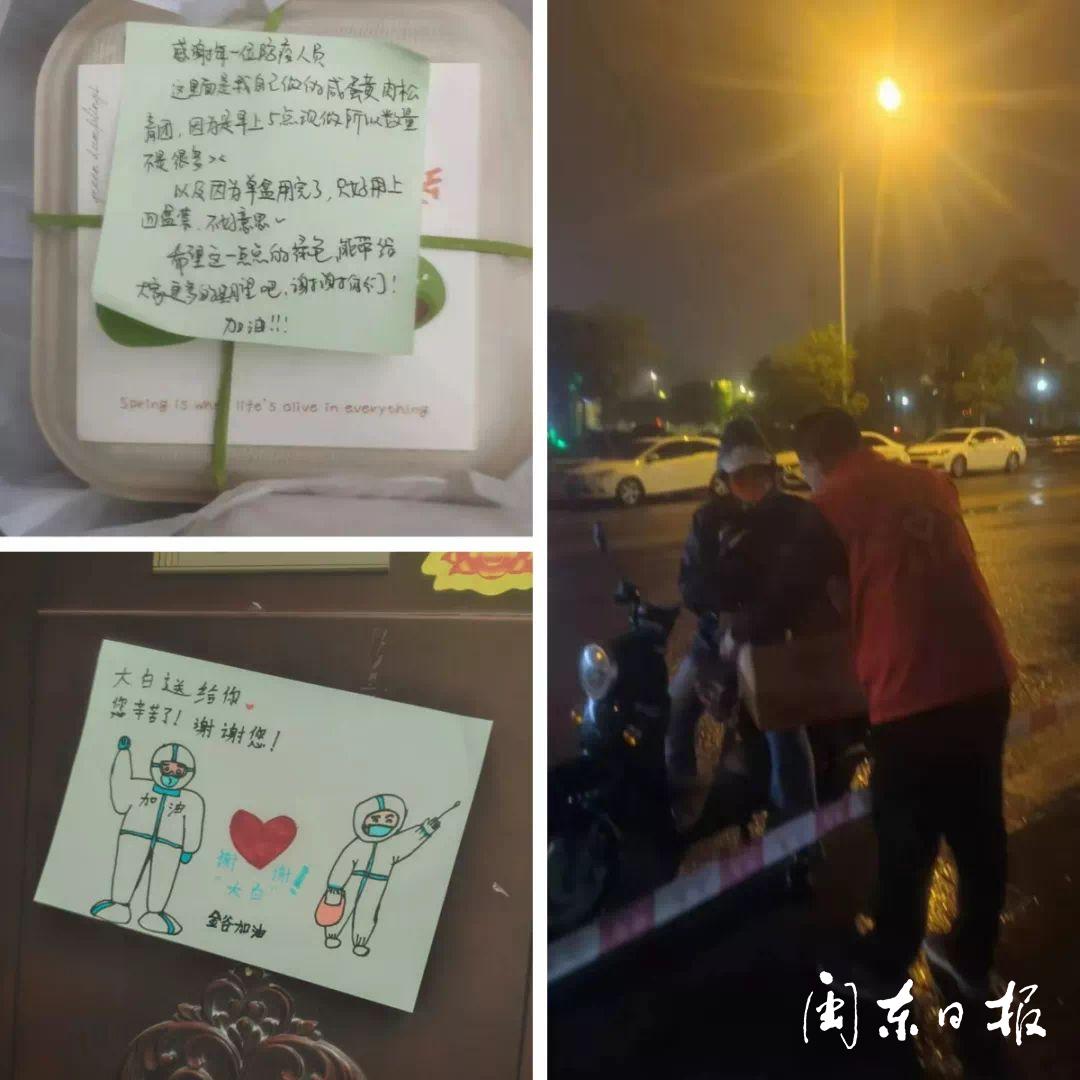 感谢每一位防疫人员
这里面是我自己做的咸蛋黄肉松
青团，因为是早上5点现做所以数量
不是很多><
以及因为单盒用完了，只好用上
四盒装，不好意思~
希望这一点点的绿色，能带给
大家更多的期望吧，谢谢你们！
加油!!!
green dumplings
Spring is when life's alive in everything
大白送给你
您辛苦了！谢谢您！
加油
谢谢！
"大白"
金谷加油
闽东日报